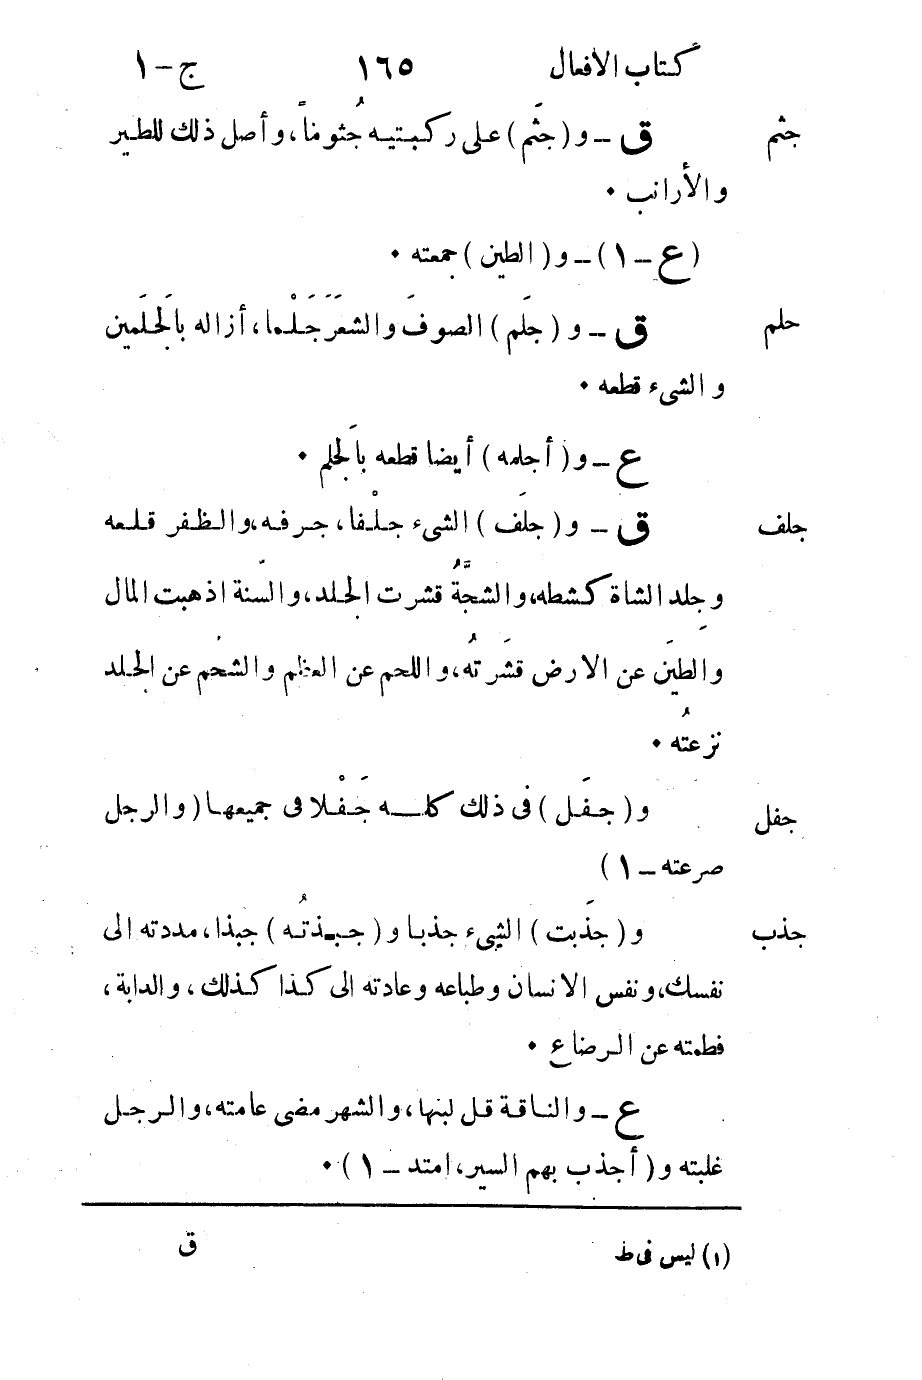 كتاب الافعال ١٦٥ ج-١
جثم ق - و (جثَم) على ركبتيه جُثوماً، وأصل ذلك للطير
والأرانب ٠
(ع - ١) - و (الطين) جمعته ٠
حلم ق - و (جلَم) الصوفَ والشعَرَ جَلْما، أزاله بالَجلَمين
والشىء قطعه ٠
ع - و (أجلمه) أيضا قطعه بالَجلم ٠
جلف ق - و (جلَف) الشىء جلْفا، جرفه، والظفر قلعه
وجلد الشاة كشطه، والشجَّةُ قشرت الجلد، والسّنة اذهبت المال
والطينَ عن الارض قشَرتهُ، واللحمِ عن العظم والشحُم عن الجلد
نزعتهُ ٠
جفل و (جفَل) فى ذلك كله جَفْلا فى جميعها (والرجل
صرعته - ١)
جذب و (جذَبت) الشىء جذبا و (جبذتُه) جبذا، مددته الى
نفسك، ونفس الانسان وطباعه وعادته الى كذا كذلك، والدابة،
فطمته عن الرضاع ٠
ع - والناقة قل لبنها، والشهر مضى عامته، والرجل
غلبته و (أجذب بهم السير، امتد - ١) ٠
(١) ليس فى ط ق